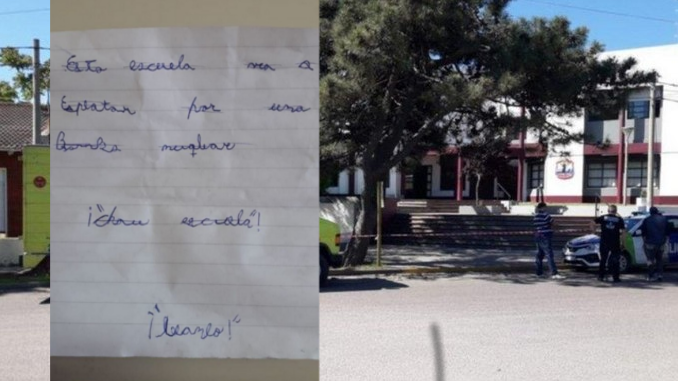 Esta escuela va a
Esplotar por una
Bomba nuqlear
¡"Chau escuela"!